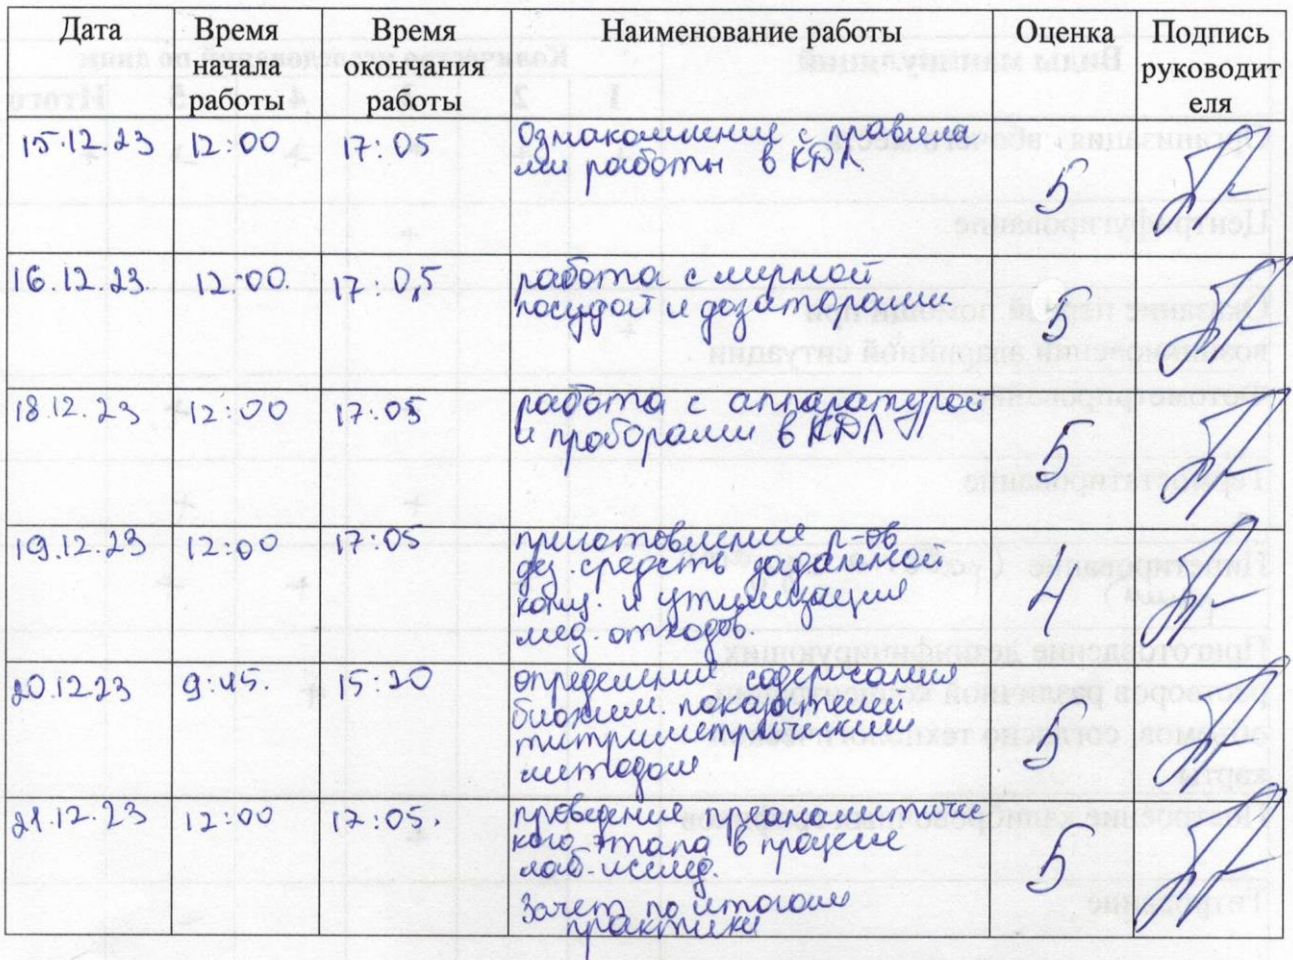 Дата Время начала работы Время окончания работы Наименование работы Оценка Подпись руководителя
15.12.23 12:00 17:05 Ознакомление с правила
ми работы в КДЛ 5
16.12.23. 12:00. 17:05 работа с мерной
посудой и дозаторами 5
18.12.23 12:00 17:05 работа с аппаратурой
и приборами в КДЛ 5
19.12.23 12:00 17:05 приготовление р-ов
дез. средств заданной
конц. и утилизация
мед. отходов. 4
20.12.23 9:45. 15:20 определение содержания
биохим. показателей
титриметрическим
методом 5
21.12.23 12:00 17:05. проведение преаналитичес
кого этапа в процессе
лаб. исслед. 5
Зачет по итогам
практики